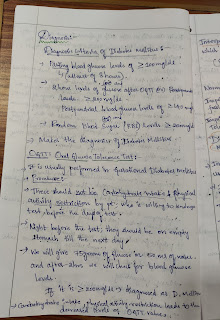 Diagnosis:-
Diagnostic Criteria of Diabetes Mellitus :-
→ Fasting blood glucose levels of ≥ 200 mg/dl
(atleast of 8 hours)
→ Whose levels of glucose after OGTT are
levels ≥ 200 mg/dl
Postprandial blood glucose levels of ≥
→ Random Blood Sugar (RBS) levels ≥ 200 mg/dl
→ Makes the diagnosis of Diabetes Mellitus
OGTT: Oral Glucose Tolerance Test:-
It is usually performed in Gestational Diabetes Mellitus
Procedure:-
→ There should not be Carbohydrate intake & physical
activity restriction by pt. who is willing to undergo
test before the day of test.
→ Night before the test they should be on empty
stomach till the next day.
→ We will give 75 grams of glucose in 300 ml of water
and after 2 hrs we will check for blood glucose
levels.
If it is ≥ 200 mg/dl → diagnosed as D. Mellitus
→ Carbohydrate intake, physical activity restriction leads to the
levels of OGTT values.